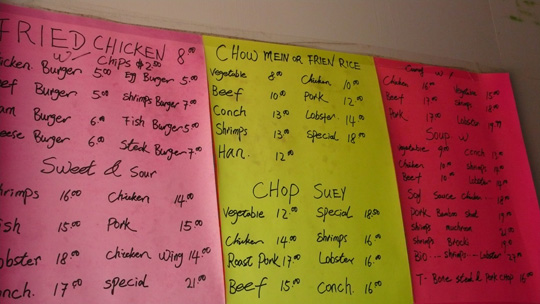 FRIED CHICKEN 8.00
W/ CHIPS $2.00
icken Burger 5.00 Egg Burger 5.00
eef Burger 5.00 Shrimps Burger 7.00
am Burger 6.00 Fish Burger 5.00
eese Burger 6.00 Steak Burger 7.00
Sweet & Sour
hrimps 16.00 Chicken 14.00
ish 15.00 Pork 15.00
obster 18.00 Chicken Wing 14.00
onch. 17.00 special 21.00
CHOW MEIN OR FRIEN RICE
Vegetable 8.00 Chicken 10.00
Beef 10.00 Pork 12.00
Conch 13.00 Lobster 14.00
Shrimps 13.00 Special 18.00
Han. 12.00
CHOP SUEY
Vegetable 12.00 Special 18.00
Chicken 14.00 Shrimps 16.00
Roast Pork 17.00 Lobster 16.00
Beef 15.00 Conch. 16.00
Chicken 16.00 15.00
Beef 17.00 18.00
Pork 17.00 Lobster
Soup W
Vegetable 9.00 Conch
Chicken 10.00 Shrimps
Beef 10.00 Lobster
Soy Sauce Chicken
Pork Bamboo
Shrimps mushroom
Shrimps
Lobster
T-Bone steak & pork chop